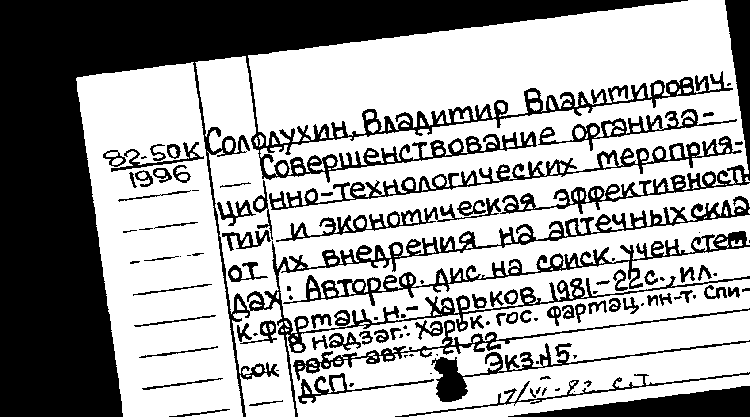 Солодухин, Владимир Владимирович.
82-50К
1996
Совершенствование организа-
ционно-технологических мероприя-
тий и экономическая эффективность
от их внедрения на аптечных скла-
дах: Автореф. дис. на соиск. учен. степ.
к. фармац. н. - Харьков, 1981. - 22 с., ил.
В надзаг.: Харьк. гос. фармац. ин-т. Спи-
сок работ авт.: с. 21-22.
ДСП. Экз. 15.
17/VI-82 с.т.